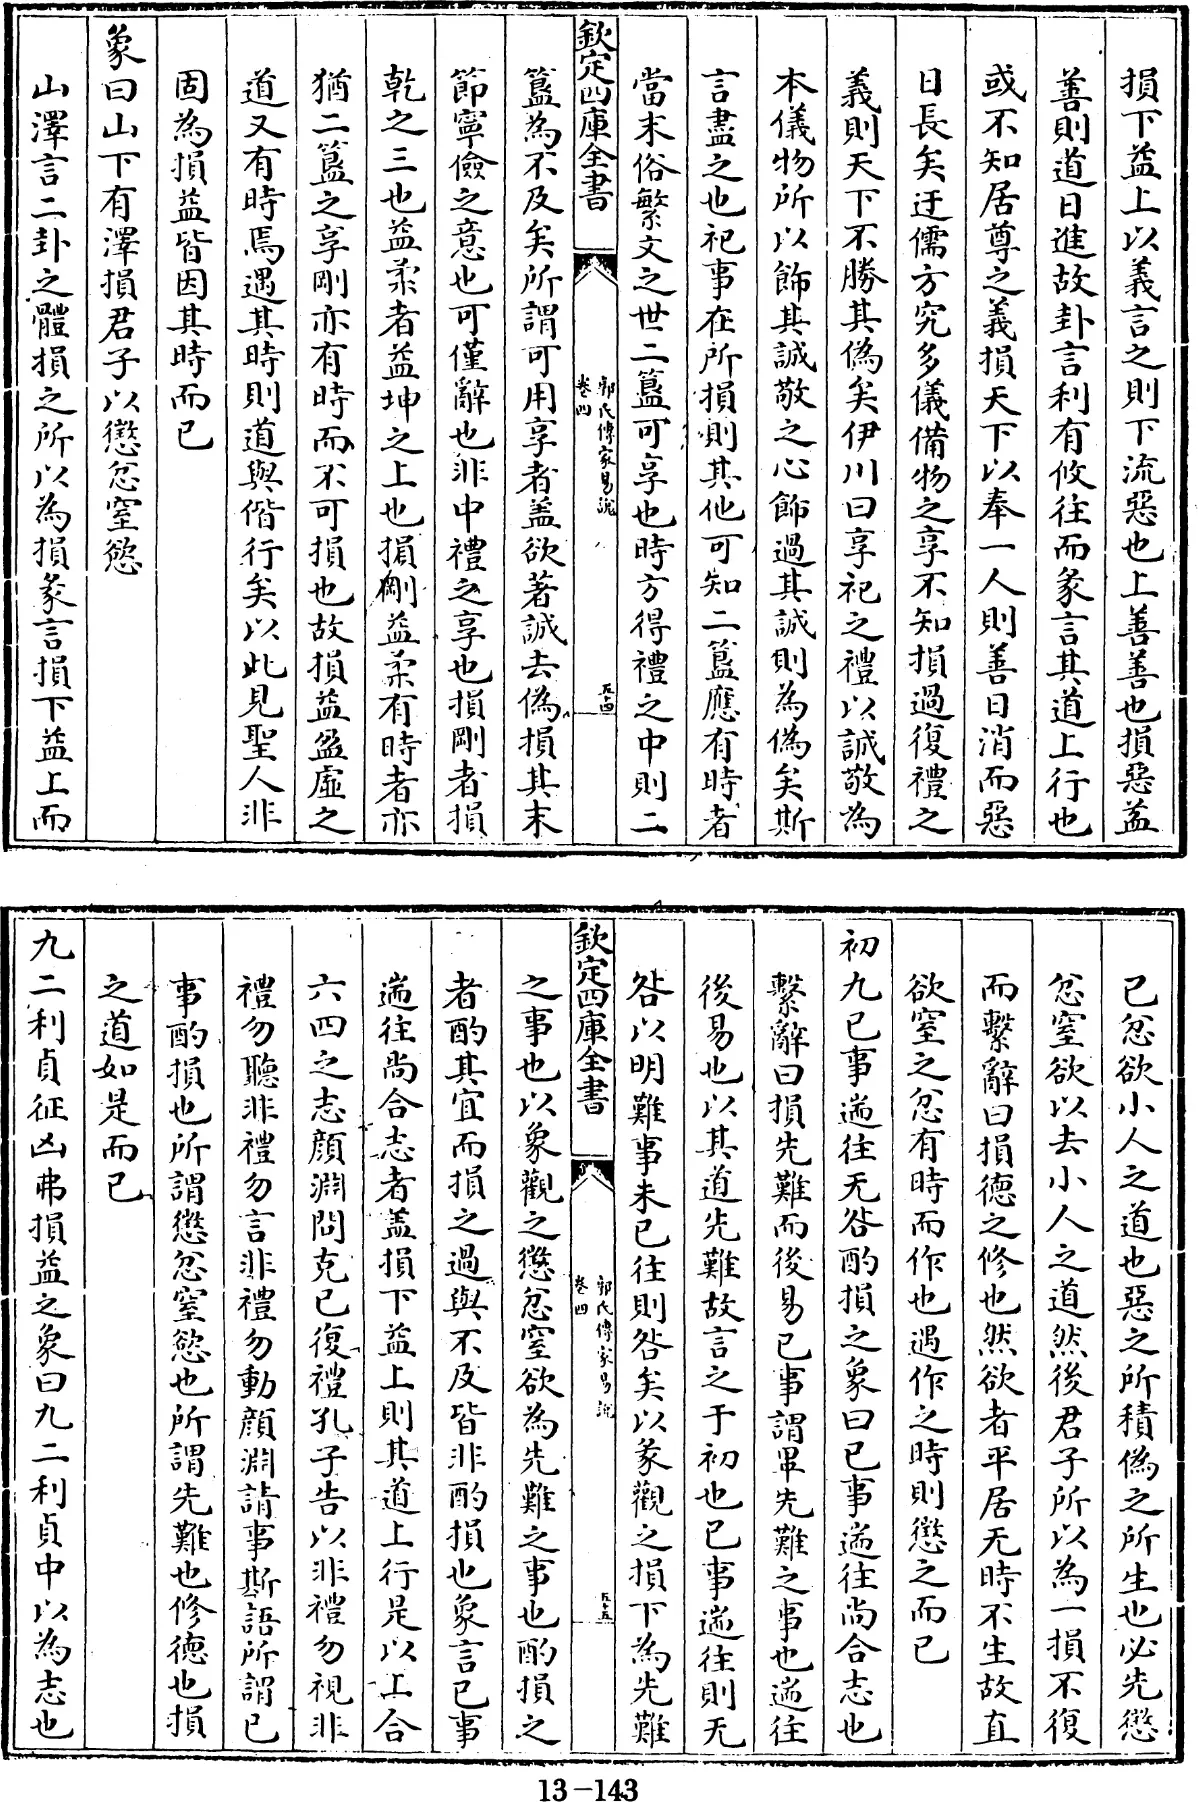 損下益上以義言之則下流惡也上善善也損惡益
善則道日進故卦言利有攸往而彖言其道上行也
或不知居尊之義損天下以奉一人則善日消而惡
日長矣迂儒方究多儀備物之享不知損過復禮之
義則天下不勝其偽矣伊川曰享祀之禮以誠敬為
本儀物所以飾其誠敬之心飾過其誠則為偽矣斯
言盡之也祀事在所損則其他可知二簋應有時者
當末俗繁文之世二簋可享也時方得禮之中則二
欽定四庫全書
郭氏傳家易說
卷四
五十四
簋為不及矣所謂可用享者蓋欲著誠去偽損其末
節寧儉之意也可僅辭也非中禮之享也損剛者損
乾之三也益柔者益坤之上也損剛益柔有時者亦
猶二簋之享剛亦有時而不可損也故損益盈虛之
道又有時焉遇其時則道與偕行矣以此見聖人非
固為損益皆因其時而已
象曰山下有澤損君子以懲忿窒慾
山澤言二卦之體損之所以為損彖言損下益上而
已忿欲小人之道也惡之所積偽之所生也必先懲
忿窒欲以去小人之道然後君子所以為一損不復
而繫辭曰損德之修也然欲者平居无時不生故直
欲窒之忿有時而作也遇作之時則懲之而已
初九已事遄往无咎酌損之象曰已事遄往尚合志也
繫辭曰損先難而後易已事謂畢先難之事也遄往
後易也以其道先難故言之于初也已事遄往則无
咎以明難事未已往則咎矣以彖觀之損下為先難
欽定四庫全書
郭氏傳家易說
卷四
五十五
之事也以象觀之懲忿窒欲為先難之事也酌損之
者酌其宜而損之過與不及皆非酌損也象言已事
遄往尚合志者蓋損下益上則其道上行是以上合
六四之志顏淵問克已復禮孔子告以非禮勿視非
禮勿聽非禮勿言非禮勿動顏淵請事斯語所謂已
事酌損也所謂懲忿窒慾也所謂先難也修德也損
之道如是而已
九二利貞征凶弗損益之象曰九二利貞中以為志也
13-143